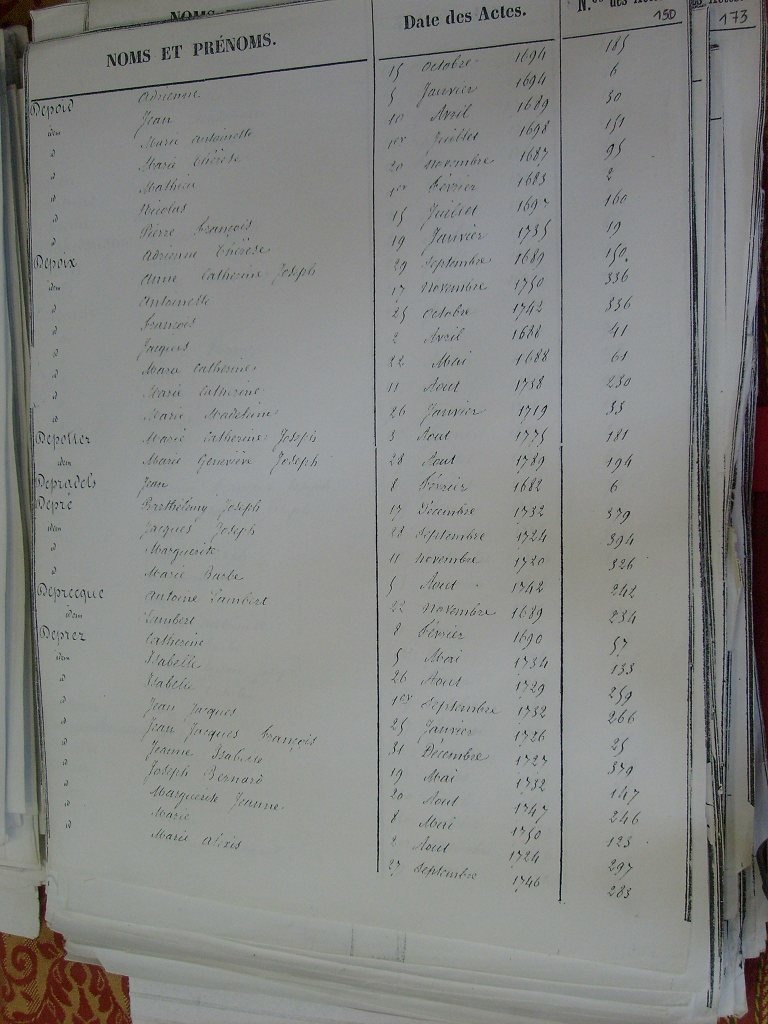 NOMS ET PRÉNOMS. Date des Actes. N.os des
150
173
Depoid Adrienne 15 Octobre 1694 185
idem Jean 5 Janvier 1694 6
d Marie Antoinette 10 Avril 1689 50
d Marie Thérèse 1er Juillet 1698 151
d Mathieu 20 Novembre 1687 95
d Nicolas 1er Février 1683 2
d Pierre François 15 Juillet 1697 160
Depoix Adrienne Thérèse 19 Janvier 1735 19
idem Anne Catherine Joseph 29 Septembre 1689 150
d Antoinette 17 Novembre 1750 336
d François 25 Octobre 1742 336
d Jacques 2 Avril 1688 41
d Marie Catherine 22 Mai 1688 61
d Marie Catherine 11 Aout 1738 230
d Marie Madeleine 26 Janvier 1719 33
Depotter Marie Catherine Joseph 3 Aout 1775 181
idem Marie Geneviève Joseph 28 Aout 1789 194
Depradels Jean 8 Février 1682 6
Depré Barthélemy Joseph 17 Décembre 1732 379
idem Jacques Joseph 28 Septembre 1724 394
d Marguerite 11 Novembre 1720 326
d Marie Barbe 5 Aout 1742 242
Deprecque Antoine Lambert 22 Novembre 1689 234
idem Lambert 8 Février 1690 57
Deprez Catherine 5 Mai 1734 133
idem Isabelle 26 Aout 1729 259
d Isabelle 1er Septembre 1732 266
d Jean Jacques 25 Janvier 1726 25
d Jean Jacques François 31 Décembre 1727 379
d Jeanne Isabelle 19 Mai 1732 147
d Joseph Bernard 20 Aout 1747 246
d Marguerite Jeanne 8 Mai 1750 123
d Marie 2 Aout 1724 297
d Marie Alexis 27 Septembre 1746 283